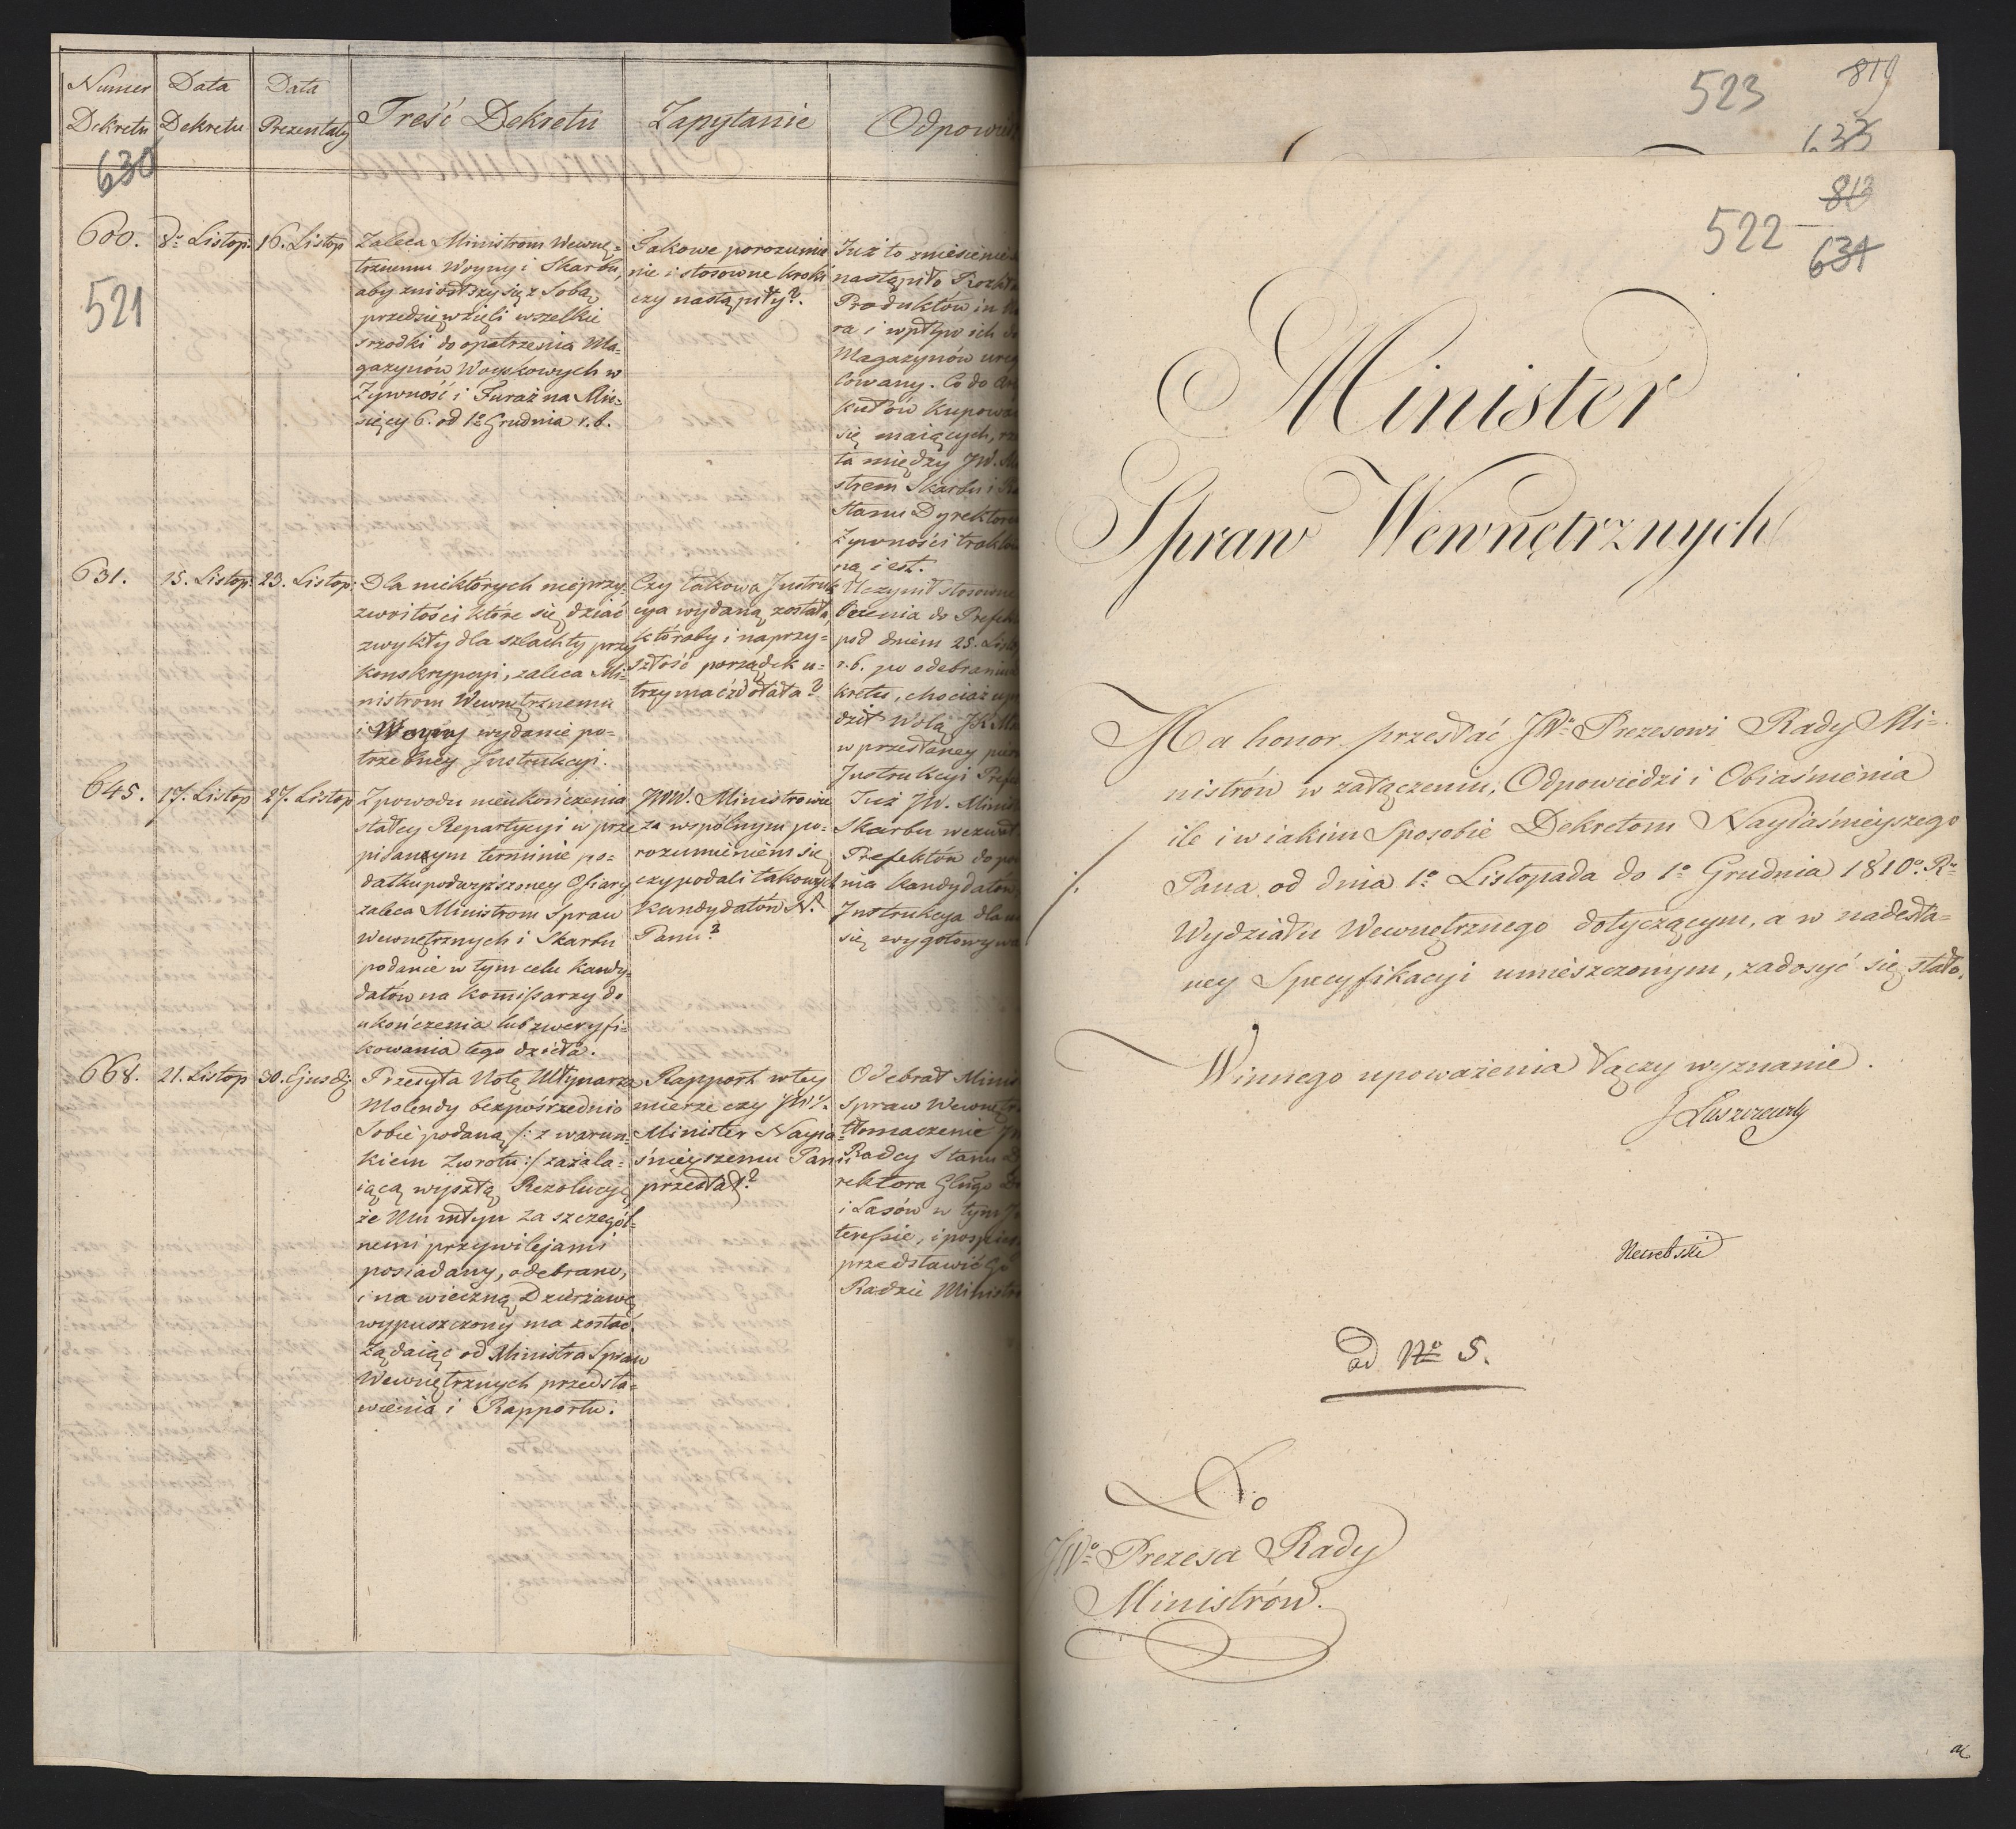 Numer Dekretu
Data Dekretu
Data Prezentaty
Treść Dekretu
Zapytanie
Odpowie
630
521
600.
8º Listop:
16. Listop
Zaleca Ministrom Wewnę=
trznemu Woyny i Skarbu,
aby zniosłszy się z Sobą
przedsięwzięli wszelkie
srzodki do opatrzenia Ma=
gazynów Woyskowych w
Żywność i Furaż na Mie=
sięcy 6. od 1º Grudnia r. b.
Takowe porozumie
nie i stosowne kroki
czy nastąpiły?.
Już to zniesienie
nastąpiło Rozkł
Produktów in
ra i wpływ ich d
Magazynów ureg
lowany. Co do Ar
kułów Kupowa
się maiących, rz
ta między JW. M
strem Skarbu i R
Stanu Dyrektor
Żywności trakto
na iest.
631.
15. Listop:
23. Listop:
Dla niektórych nieprzy=
zwoitości które się dziać
zwykły dla szlachty przy
konskrypcyi, zaleca Mi=
nistrom Wewnętrznemu
i Woyny wydanie po=
trzebney Instrukcyi.
Czy takowa Instruk
cya wydaną została,
któraby i naprzy=
szłość porządek u=
trzymać zdołała?
Uczynił stosowne
lecenia do Prefek
pod dniem 25. Listo
r. b. po odebraniu
kretu, chociaż up
dził Wolą JK M
w przesłaney pier
Instrukcyi Prefe
645.
17. Listop
27. Listop
Z powodu nieukończenia
stałey Repartycyi w prze
pisanym terminie po=
datku podwyższoney Ofiary
zaleca Ministrom Spraw
Wewnętrznych i Skarbu
podanie w tym celu Kandy=
datów na Kommissarzy do
ukończenia lub zweryfi=
kowania tego dzieła.
JWW. Ministrowie
za wspólnym po=
rozumieniem się
czy podali takowych
Kandydatów N.
Panu?
Już JW. Minis
Skarbu wezwał
Prefektów do po
nia Kandydatów
Instrukcya dla n
się wygotowywa
668.
21. Listop
30. Ejusd
Przesyła Notę Młynarza
Molendy bezpośrzednio
Sobie podaną /: z warun=
kiem Zwrotu :/ zażala=
iącą wyszłą Rezolucyę
że Mu młyn za szczegól=
nemi przywilejami
posiadany, odebrano,
i na wieczną Dzierżawę
wypuszczony ma zostać.
Żądaiąc od Ministra Spraw
Wewnętrznych przedsta=
wienia i Rapportu.
Rapport w tey
mierze czy JW.
Minister Nayia=
śnieyszemu Panu
przesłał?
Odebrał Minis
Spraw Wewnętr
tłomaczenie J
Radcy Stanu D
rektora Głngo D
i Lasów w tym J
teressie, i pospies
przedstawić Go
Radzie Ministr
523
819
633
522
813
631
Minister
Spraw Wewnętrznych
Ma honor przesłać JWº Prezesowi Rady Mi=
nistrów w załączeniu, Odpowiedzi i Obiaśnienia
ile i w iakim Sposobie Dekretom Nayiaśnieyszego
Pana od dnia 1º Listopada do 1º Grudnia 1810º. R.
Wydziału Wewnętrznego dotyczącym, a w nadesła=
ney Specyfikacyi umieszczonym, zadosyć się stało.
Winnego upoważenia łączy wyznanie.
J Łuszczewsky
ad Nº 5.
Do
JWº Prezesa Rady
Ministrów.